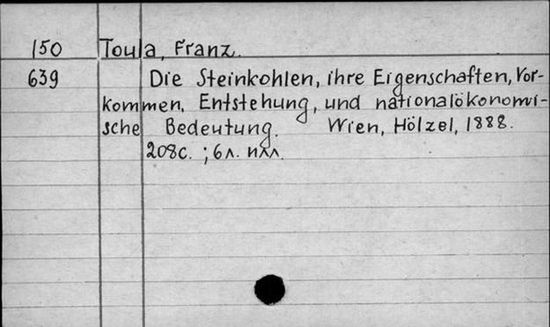 150 Toula, Franz.
639 Die Steinkohlen, ihre Eigenschaften, Vor-
kommen, Entstehung, und nationalökonomi-
sche Bedeutung. Wien, Hölzel, 1888.
208с. ; 6л. илл.